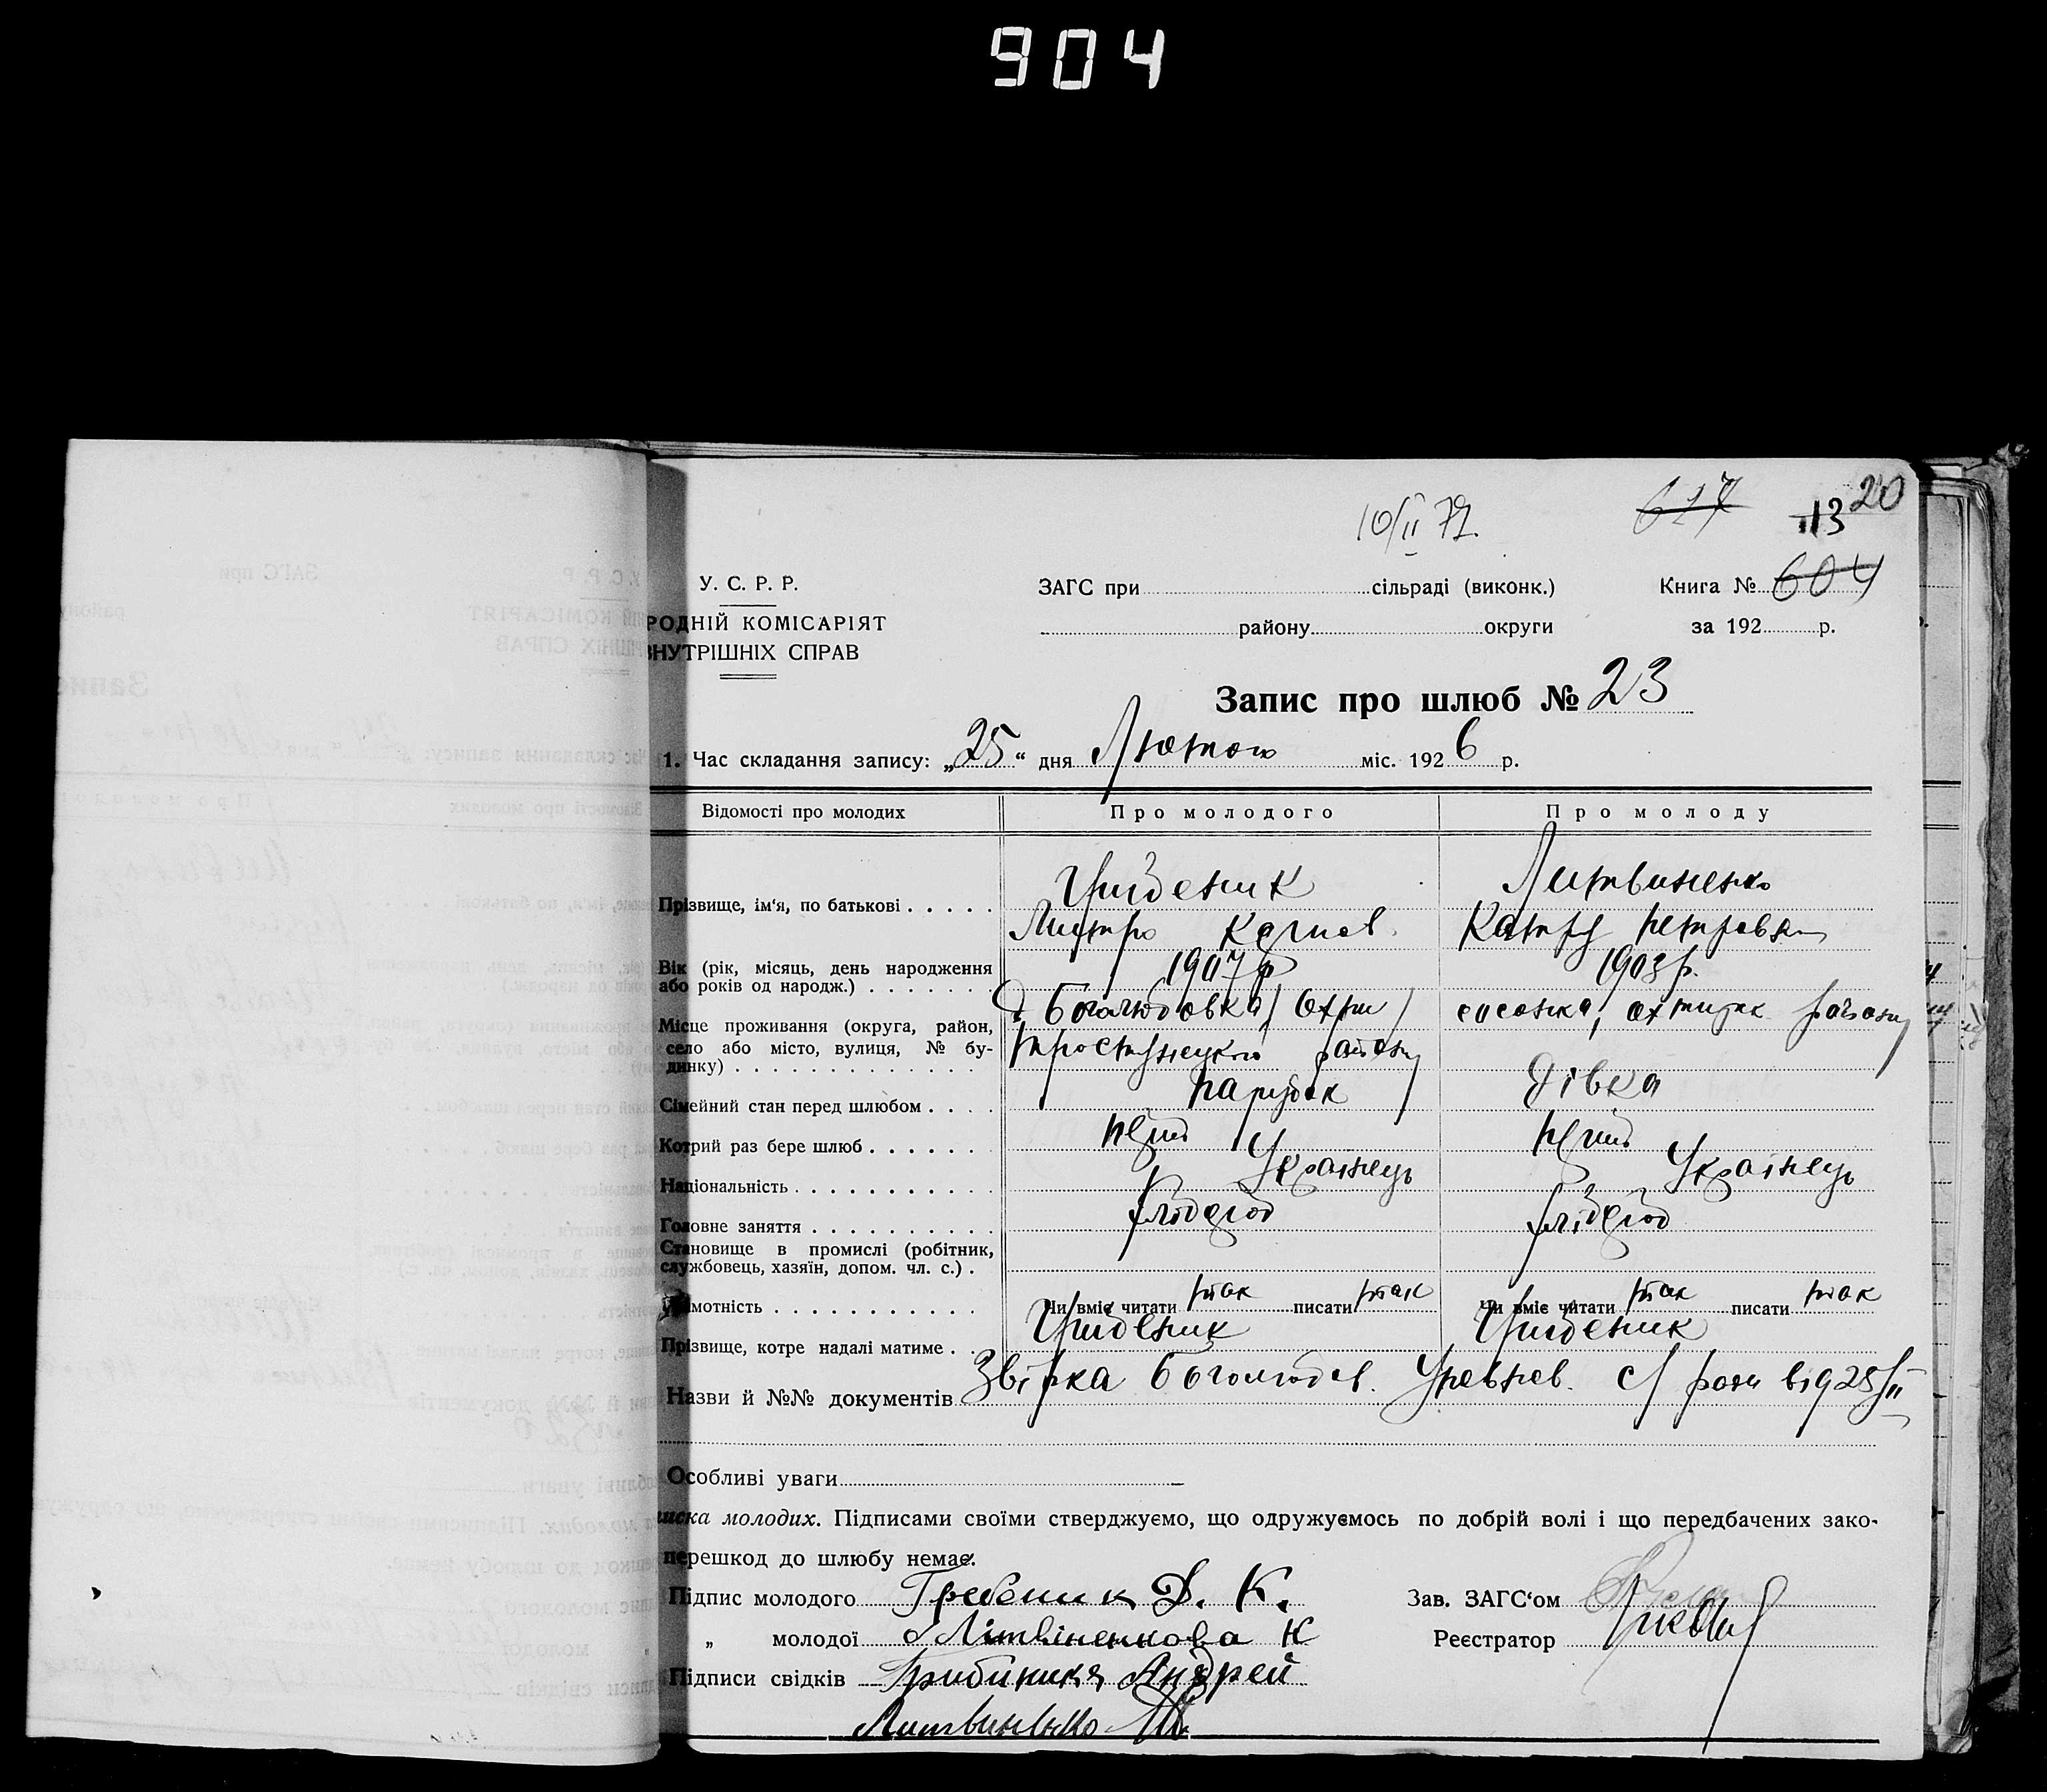 904
10/II 72
617
13 20
У. С. Р. Р.
РОДНІЙ КОМІСАРІЯТ
ВНУТРІШНІХ СПРАВ
ЗАГС при сільраді (виконк.)
району округи
Книга № 604
за 192 р.
Запис про шлюб № 23
1. Час складання запису: „25“ дня Лютого міс. 1926 р.
Відомості про молодих Про молодого Про молоду
Прізвище, ім‘я, по батькові Грибеник Литвиненко
Митро Катря Петровна
Вік (рік, місяць, день народження 1907 р 1903 р.
або років од народж.)
Місце проживання (округа, район, Боголюбовка, Охти
село або місто, вулиця, № бу- Тростянецкого району
динку)
Сімейний стан перед шлюбом парубок дівка
Котрий раз бере шлюб перш перш
Національність Українець Українець
Головне заняття хлібороб хлібороб
Становище в промислі (робітник,
службовець, хазяїн, допом. чл. с.)
Грамотність Чи вміє читати так писати так Чи вміє читати так писати так
Прізвище, котре надалі матиме Грибеник Грибеник
Назви й №№ документів від 25/II
Особливі уваги
иска молодих. Підписами своїми стверджуємо, що одружуємось по добрій волі і що передбачених зако-
перешкод до шлюбу немає.
Підпис молодого Гребеник Д. К. Зав. ЗАГС‘ом
„ молодої Літвіненкова К Реєстратор
Підписи свідків Андрей
Литвиненко